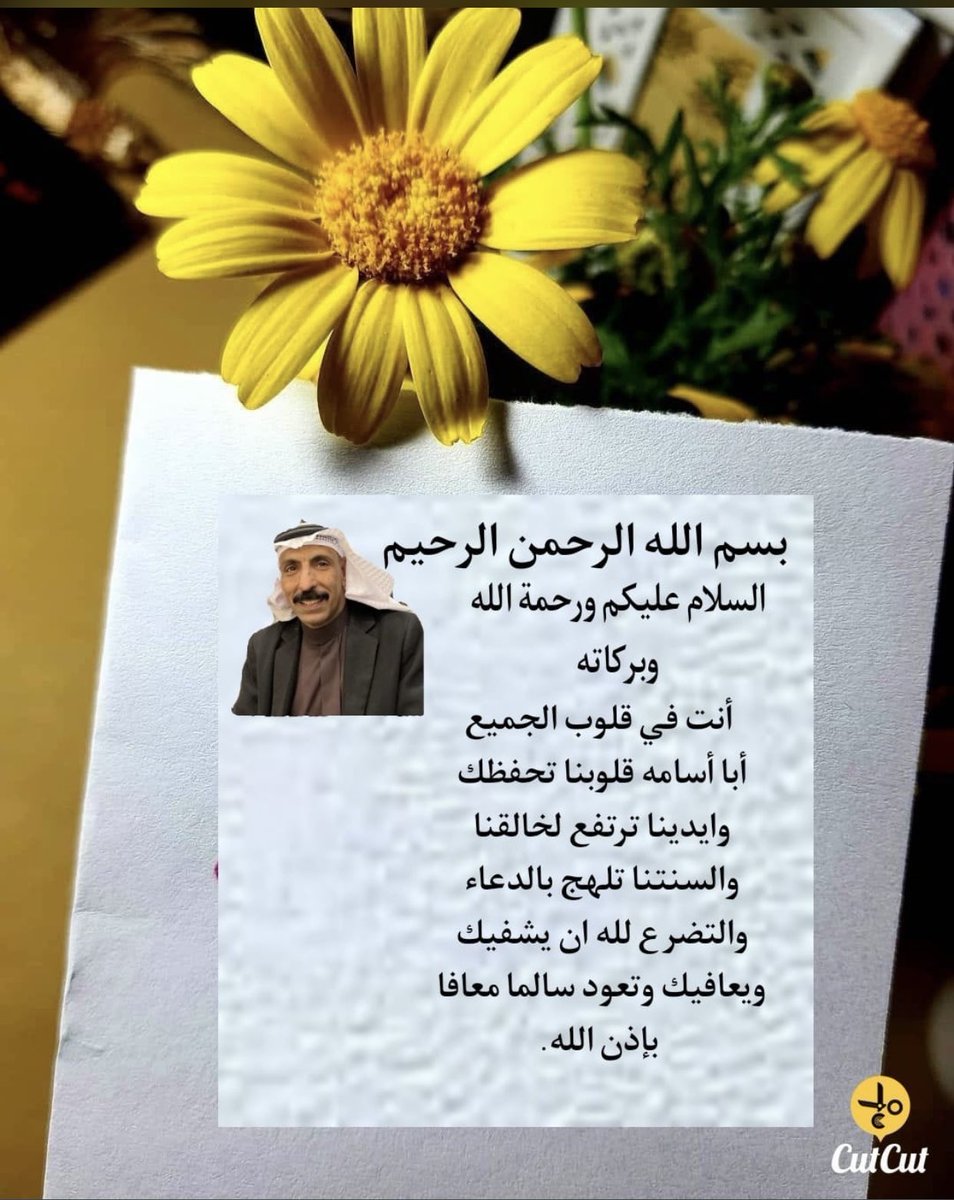 بسم الله الرحمن الرحيم
السلام عليكم ورحمة الله
وبركاته
أنت في قلوب الجميع
أبا أسامه قلوبنا تحفظك
وايدينا ترتفع لخالقنا
والسنتنا تلهج بالدعاء
والتضرع لله ان يشفيك
ويعافيك وتعود سالما معافا
بإذن الله.
CutCut